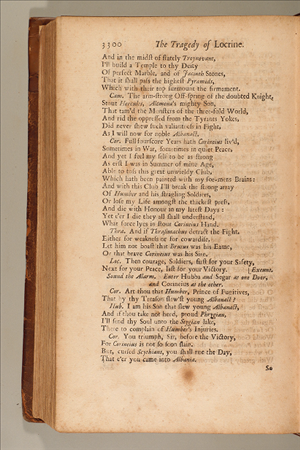 3300 The Tragedy of Locrine.
And in the midst of stately Troynovant,
I'll build a Temple to thy Deity
Of perfect Marble, and of Jacinth Stones,
That it shall pass the highest Pyramids,
Which with their top surmount the firmament.
Cam. The arm-strong Off-spring of the doubted Knight,
Stout Hercules, Alcmena's mighty Son,
That tam'd the Monsters of the threefold World,
And rid the oppressed from the Tyrants Yokes,
Did never shew such valiantness in Fight,
As I will now for noble Albanact.
Cor. Full fourscore Years hath Corineius liv'd,
Sometimes in War, sometimes in quiet Peace,
And yet I feel my self to be as strong
As erst I was in Summer of mine Age,
Able to toss this great unwieldy Club,
Which hath been painted with my foe-mens Brains:
And with this Club I'll break the strong array
Of Humber and his stragling Soldiers,
Or lose my Life amongst the thickest press,
And die with Honour in my latest Days:
Yet e'er I die they all shall understand,
What force lyes in stout Corineius Hand.
Thra. And if Thrasimachus detract the Fight,
Either for weakness or for cowardise,
Let him not boast that Brutus was his Eame,
Or that brave Corineius was his Sire.
Loc. Then courage, Soldiers, first for your Safety,
Next for your Peace, last for your Victory. [Exeunt.
Sound the Alarm. Enter Hubba and Segar at one Door,
and Corineius at the other.
Cor. Art thou that Humber, Prince of Fugitives,
That by thy Treason slew'st young Albanact?
Hub. I am his Son that slew young Albanact,
And if thou take not heed, proud Phrygian,
I'll send thy Soul unto the Stygian lake,
There to complain of Humber's Injuries.
Cor. You triumph, Sir, before the Victory,
For Corineius is not so soon slain.
But, cursed Scythians, you shall rue the Day,
That e'er you came into Albania.
So